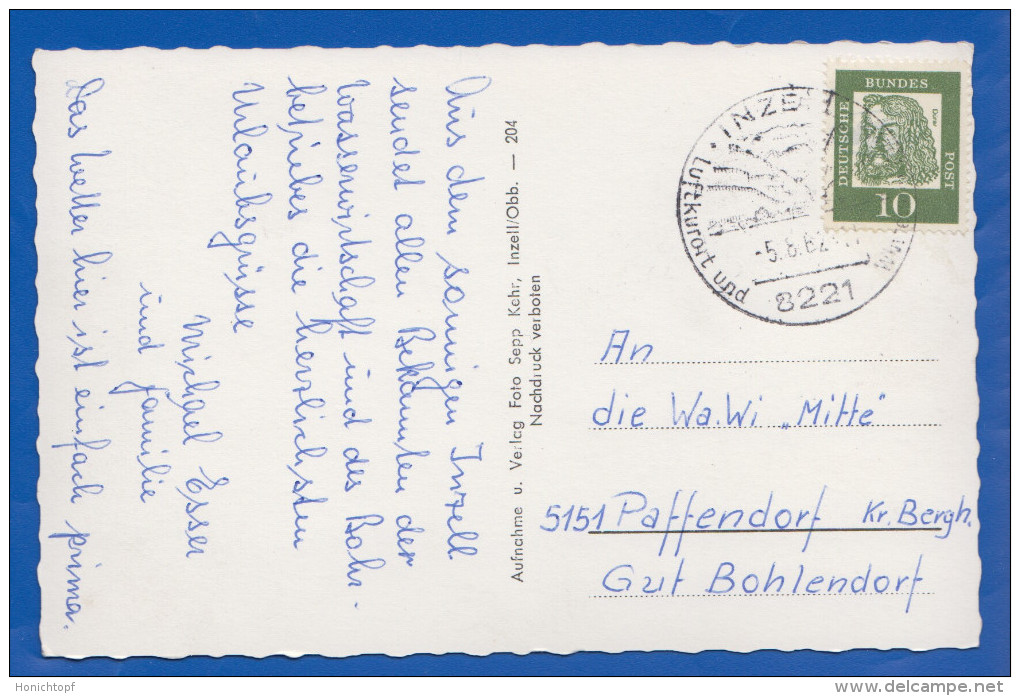 Aus dem sonnigen Inzell
sendet allen Bekannten der
Wasserwirtschaft und des Bohr-
betriebes die herzlichsten
Urlaubsgrüsse
Michael Esser
und Familie
Das Wetter hier ist einfach prima.
Aufnahme u. Verlag Foto Sepp Kehr, Inzell/Obb. — 204
Nachdruck verboten
INZELL
Luftkurort und
-5.6.62
8221
DEUTSCHE
BUNDES
POST
Dürer
10
An
die Wa.Wi „Mitte"
5151 Paffendorf Kr. Bergh.
Gut Bohlendorf
Honichtopf
www.delcampe.net